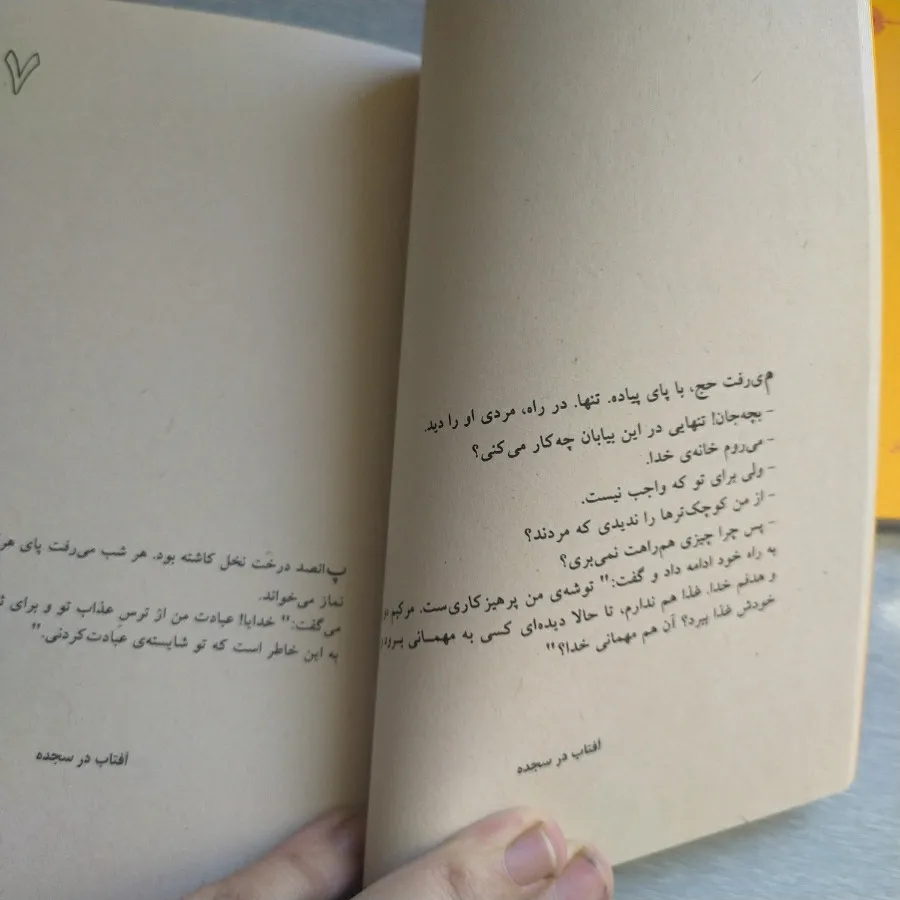 می‌رفت حج، با پای پیاده. تنها. در راه، مردی او را دید.
- بچه‌جان! تنهایی در این بیابان چه‌کار می‌کنی؟
- می‌روم خانه‌ی خدا.
- ولی برای تو که واجب نیست.
- از من کوچک‌ترها را ندیدی که مردند؟
- پس چرا چیزی هم‌راهت نمی‌بری؟
به راه خود ادامه داد و گفت:" توشه‌ی من پرهیزکاری‌ست. مرکبم دو
و هدفم خدا. غذا هم ندارم، تا حالا دیده‌ای کسی به مهمـانی برود و
خودش غذا ببرد؟ آن هم مهمانی خدا؟"
آفتاب در سجده
۷
پانصد درخت نخل کاشته بود. هر شب می‌رفت پای هر
نماز می‌خواند.
می‌گفت:" خدایا! عبادت من از ترسِ عذاب تو و برای
به این خاطر است که تو شایسته‌ی عبادت‌کردنی."
آفتاب در سجده